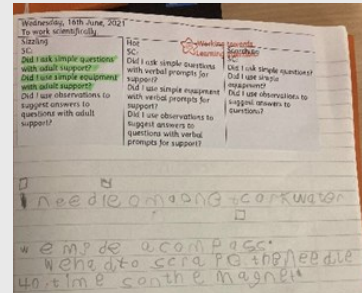 Wednesday, 16th June, 2021
To work scientifically
Sizzling
SC:
Did I ask simple questions
with adult support?
Did I use simple equipment
with adult support?
Did I use observations to
suggest answers to
questions with adult
support?
Hot
SC:
Did I ask simple questions
with verbal prompts for
support?
Did I use simple equipment
with verbal prompts for
support?
Did I use observations to
suggest answers to
questions with verbal
prompts for support?
Working towards
Learning
Scorching
SC:
Did I ask simple questions?
Did I use simple
equipment?
Did I use observations to
suggest answers to
questions?
needle magne t corkwater
w e made a compass.
we had to scra pe the needle
40 time s on the magnet.